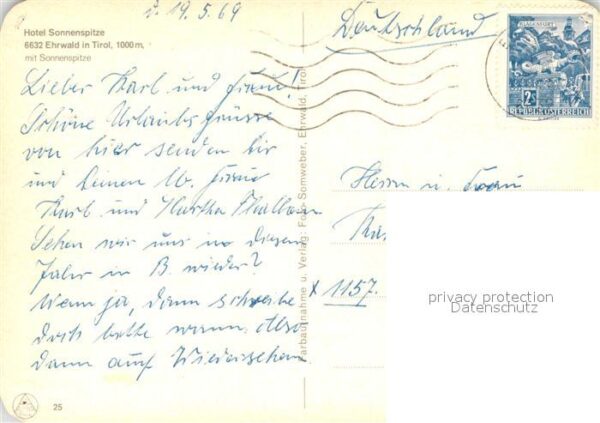 d. 19.5.69
Deutschland
Hotel Sonnenspitze
6632 Ehrwald in Tirol, 1000 m,
mit Sonnenspitze
KLAGENFURT
2 S
REPUBLIK ÖSTERREICH
Lieber Karl und Frau!
Schöne Urlaubsgrüsse
von hier senden Dir
und Deiner lb. Frau
Karl und Hertha
Sehen wir uns in diesem
Jahr in B. wieder?
Wenn ja, dann schreibe
doch bitte wann. Also
dann auf Wiedersehen
Farbaufnahme u. Verlag: Foto Somweber, Ehrwald, Tirol
Herrn u. Frau
1157
privacy protection
Datenschutz
25